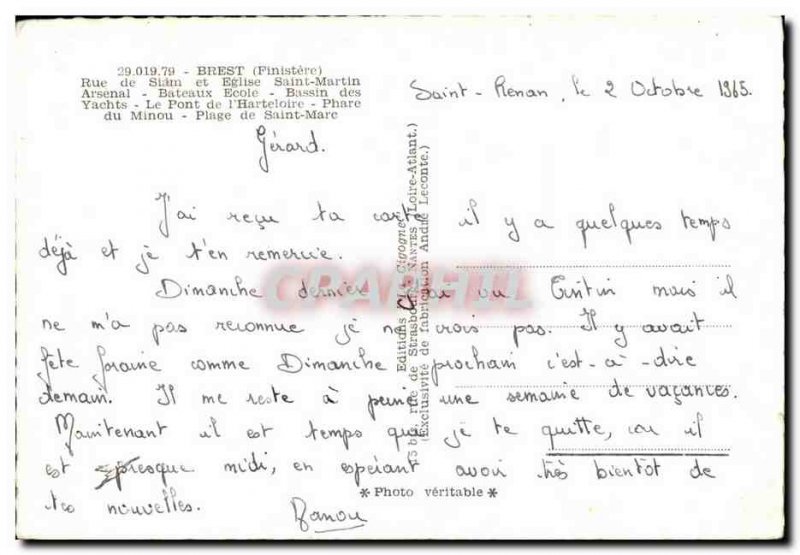 29.019.79 - BREST (Finistère)
Rue de Siam et Eglise Saint-Martin
Arsenal - Bateaux Ecole - Bassin des
Yachts - Le Pont de l'Harteloire - Phare
du Minou - Plage de Saint-Marc
Saint-Renan, le 2 Octobre 1965.
Gérard.
J'ai reçu ta carte il y a quelques temps
déjà et je t'en remercie.
Dimanche dernier j'ai vu mais il
ne m'a pas reconnue je ne crois pas. Il y avait
fête foraine comme Dimanche prochain c'est-à-dire
demain. Il me reste à peine une semaine de vacances.
Maintenant il est temps que je te quitte, car il
est presque midi, en espérant avoir très bientôt de
tes nouvelles.
Editions "La Cigogne"
75 bis, rue de Strasbourg, NANTES (Loire-Atlant.)
(Exclusivité de fabrication André Leconte.)
* Photo véritable *
CPARAMA